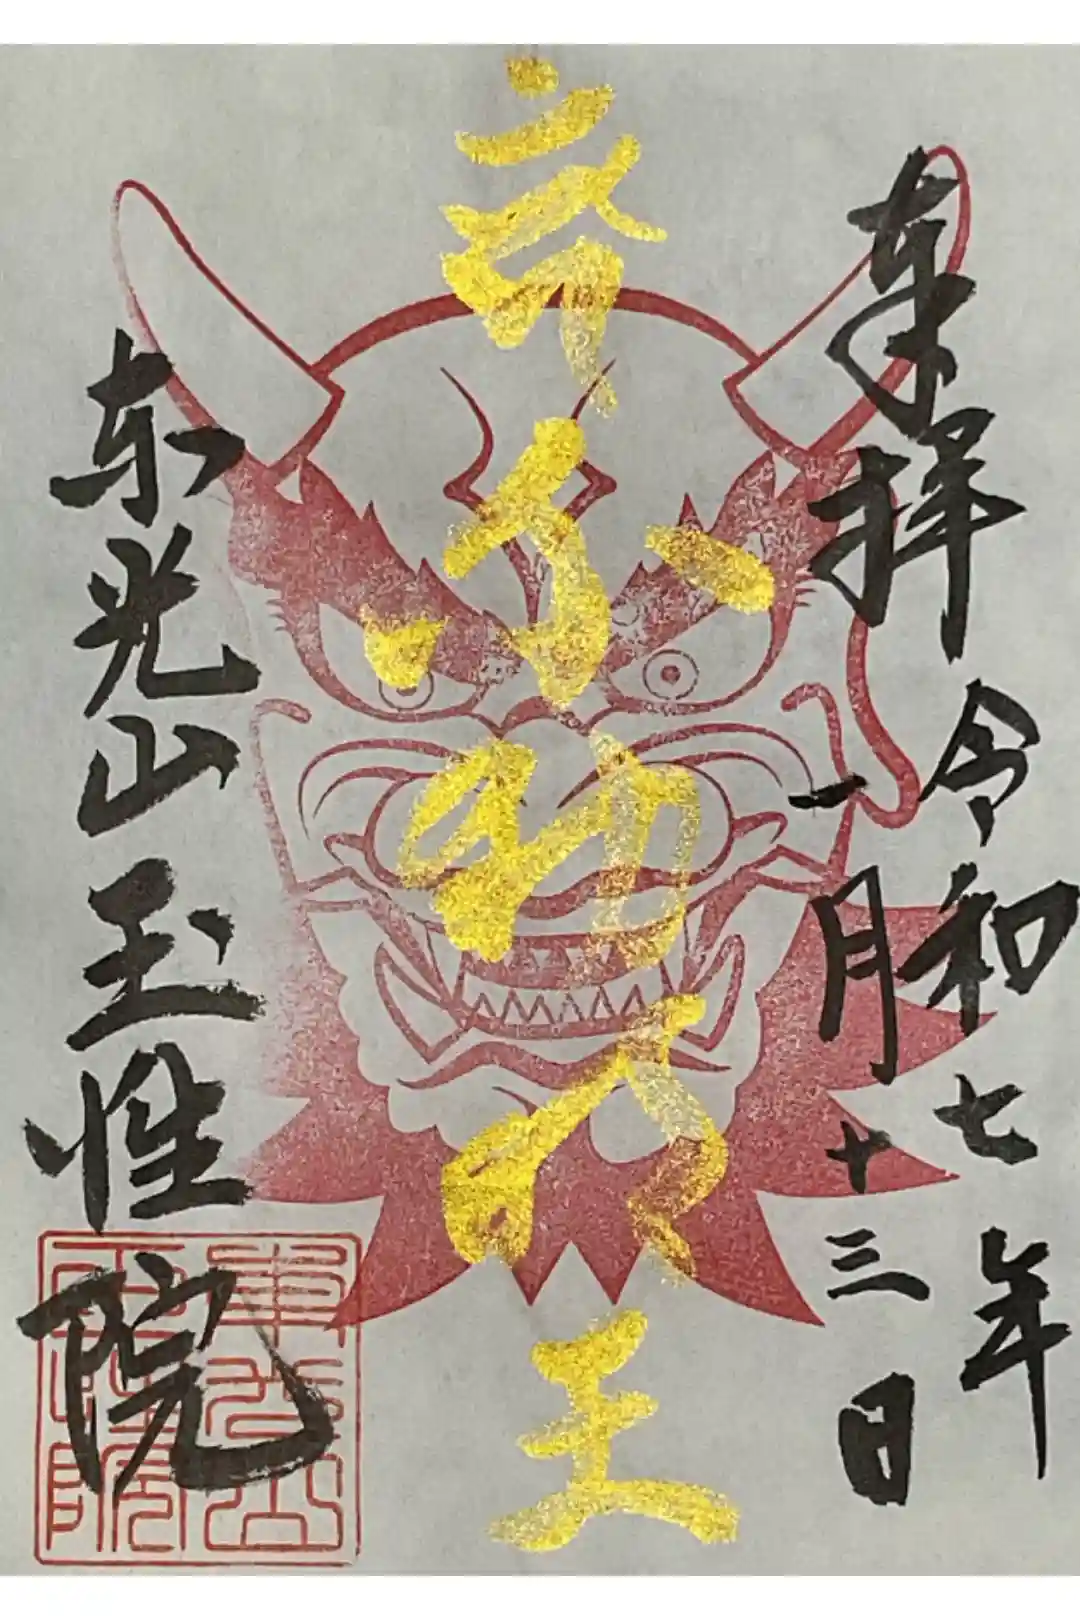 奉拝
令和七年
一月十三日
不動明王
東光山玉性院
東光山
玉性院